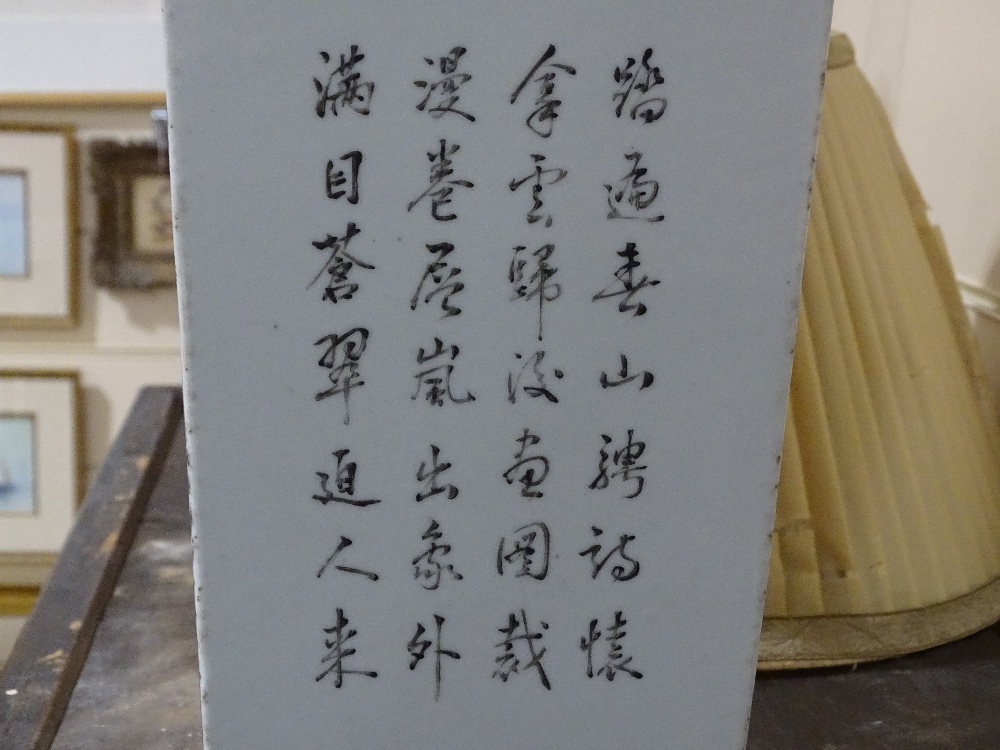 踏遍春山騁詩懷
拿雲歸後畫圖裁
漫卷層嵐出象外
滿目蒼翠迫人来